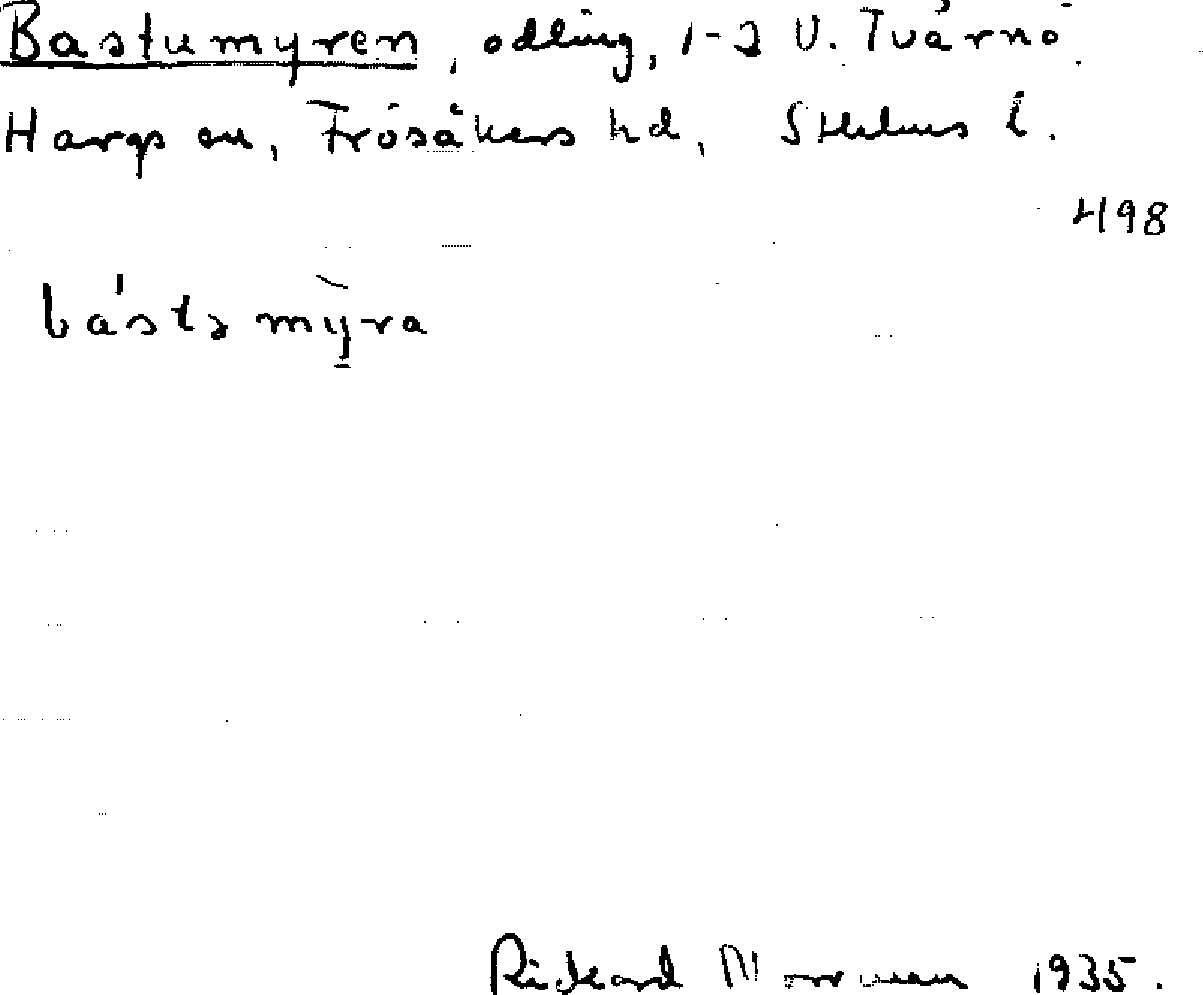 Bastumyren, odling, 1-2 V. Tvärnö.
Hargs sn, Frösåkers hd, Sthlms l.
498
bástə mỳ̱ra
Rickard 1935.